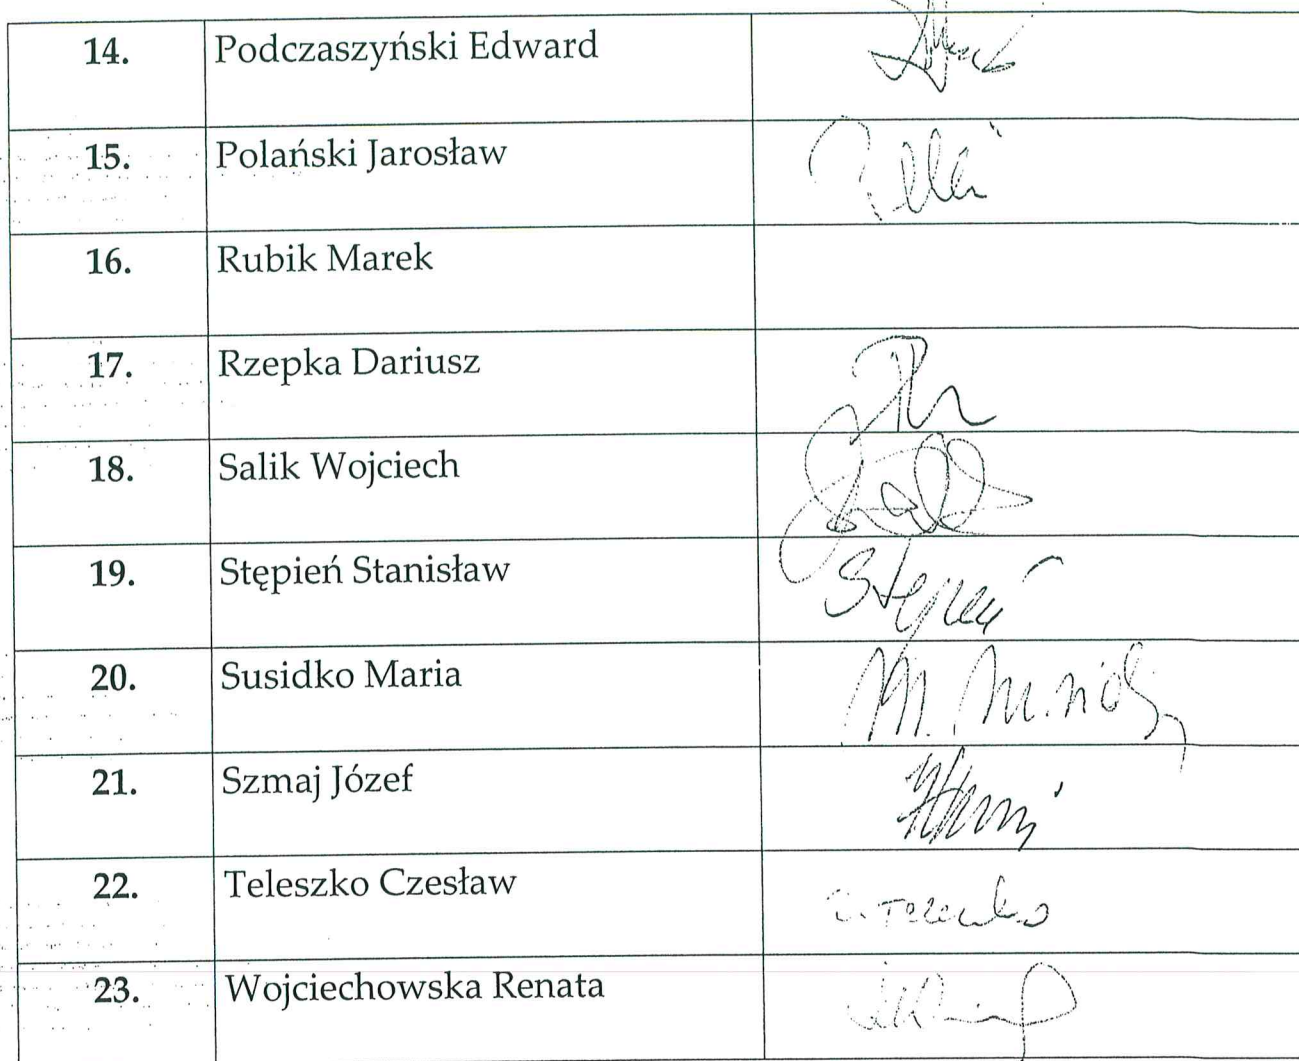 14. Podczaszyński Edward
15. Polański Jarosław
16. Rubik Marek
17. Rzepka Dariusz
18. Salik Wojciech
19. Stępień Stanisław
Stępień
20. Susidko Maria
21. Szmaj Józef
22. Teleszko Czesław
23. Wojciechowska Renata